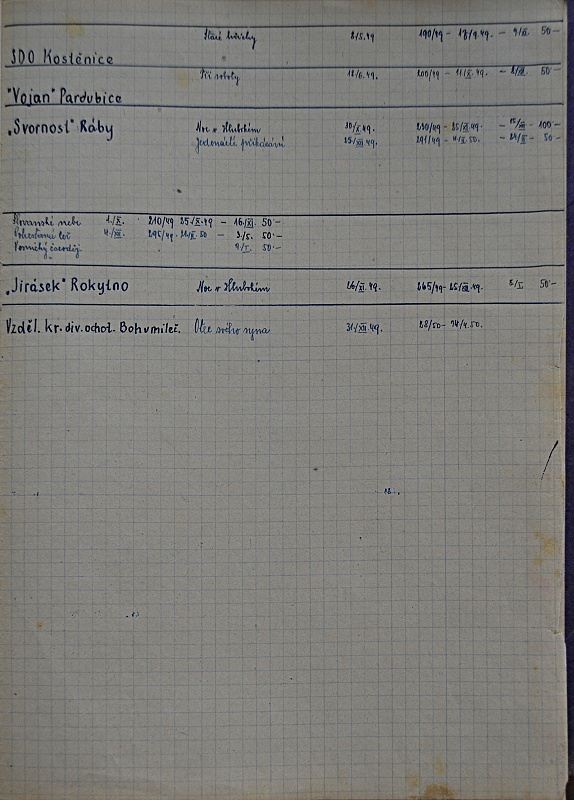 Staré hříchy 8/5.49 190/49 - 17/9.49. - 9/XI. 50-
SDO Kostěnice
Tři soboty 12/6.49. 200/49 - 11/X.49. - 50-
"Vojan" Pardubice
„Svornost" Ráby Noc v Hlubokém 30/X.49. 250/49 - 25/XI.49. - 15/XII - 100-
Jedenácté přikázání 25/XII.49. 291/49 - 11/I.50. - 24/II - 50
Slovanské nebe 1./X. 210/49 25/X.49 - 16/XI. 50-
4./XII. 295/49 - .50 - 3/5. 50-
50-
„Jirásek" Rokytno Noc v Hlubokém 26/XI.49. 265/49 - 25/XII.49. 5/I 50-
Vzděl. kr. div. ochot. Bohumileč. Otec svého syna 31/XII.49. 28/50 - 4.50.